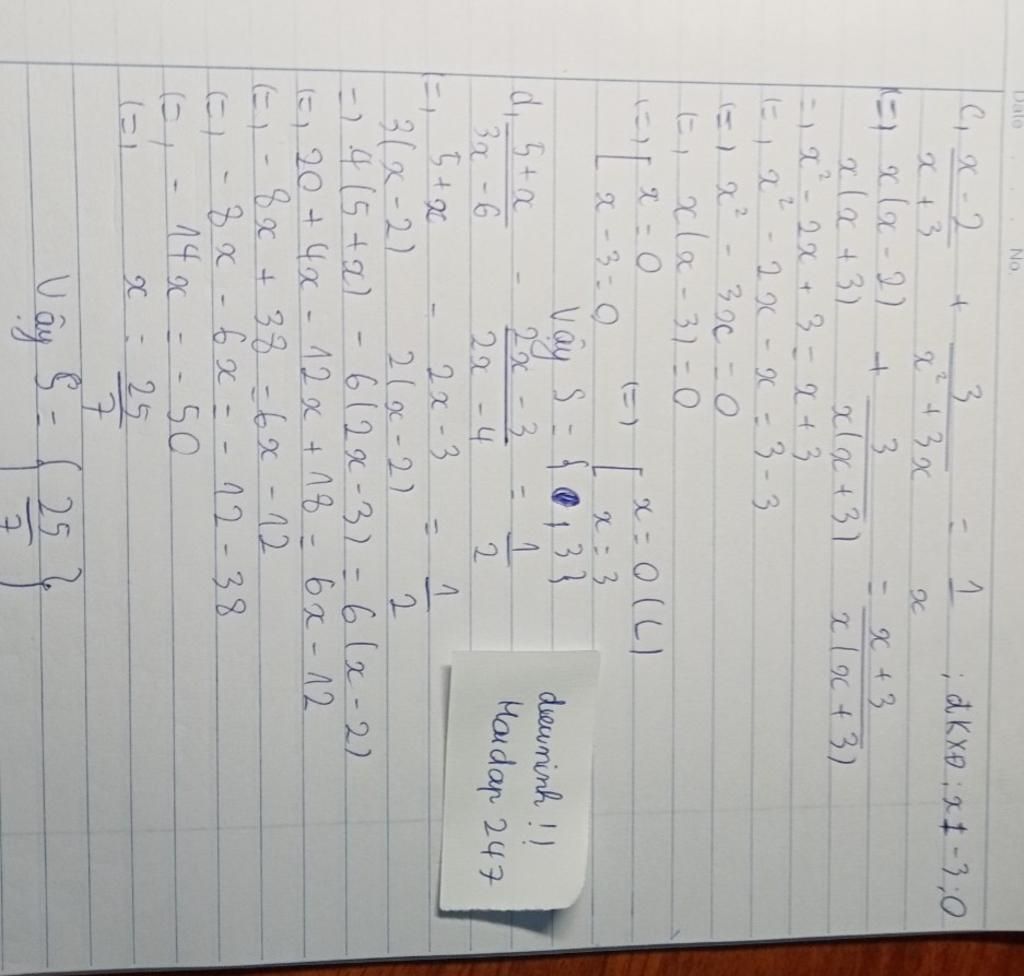 Date No.
c, x-2/x+3 + 3/x²+3x = 1/x ; đKXĐ: x ≠ -3; 0
(=) x(x-2)/x(x+3) + 3/x(x+3) = x+3/x(x+3)
=) x² - 2x + 3 = x + 3
(=) x² - 2x - x = 3 - 3
(=) x² - 3x = 0
(=) x(x-3) = 0
(=) [ x = 0 (=) [ x = 0 (L)
x - 3 = 0 x = 3
Vậy S = { , 3}
d, 5+x/3x-6 - 2x-3/2x-4 = 1/2
(=) 5+x/3(x-2) - 2x-3/2(x-2) = 1/2
=) 4(5+x) - 6(2x-3) = 6(x-2)
(=) 20 + 4x - 12x + 18 = 6x - 12
(=) -8x + 38 = 6x - 12
(=) -8x - 6x = -12 - 38
(=) -14x = -50
(=) x = 25/7
Vậy S = {25/7}
dieuminh!!
Hoidap 247